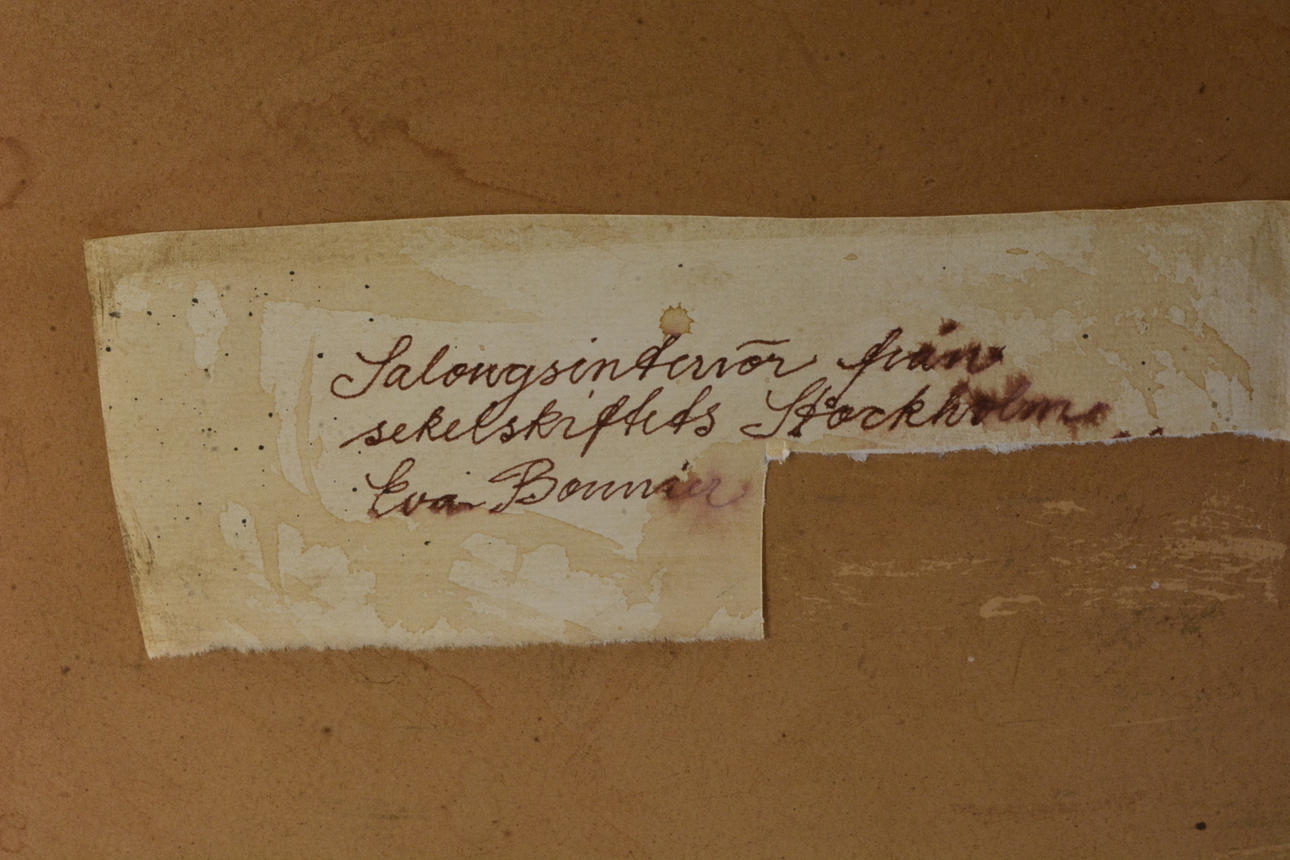 Salongsinteriör från
sekelskiftets Stockholm.
Eva Bonnier